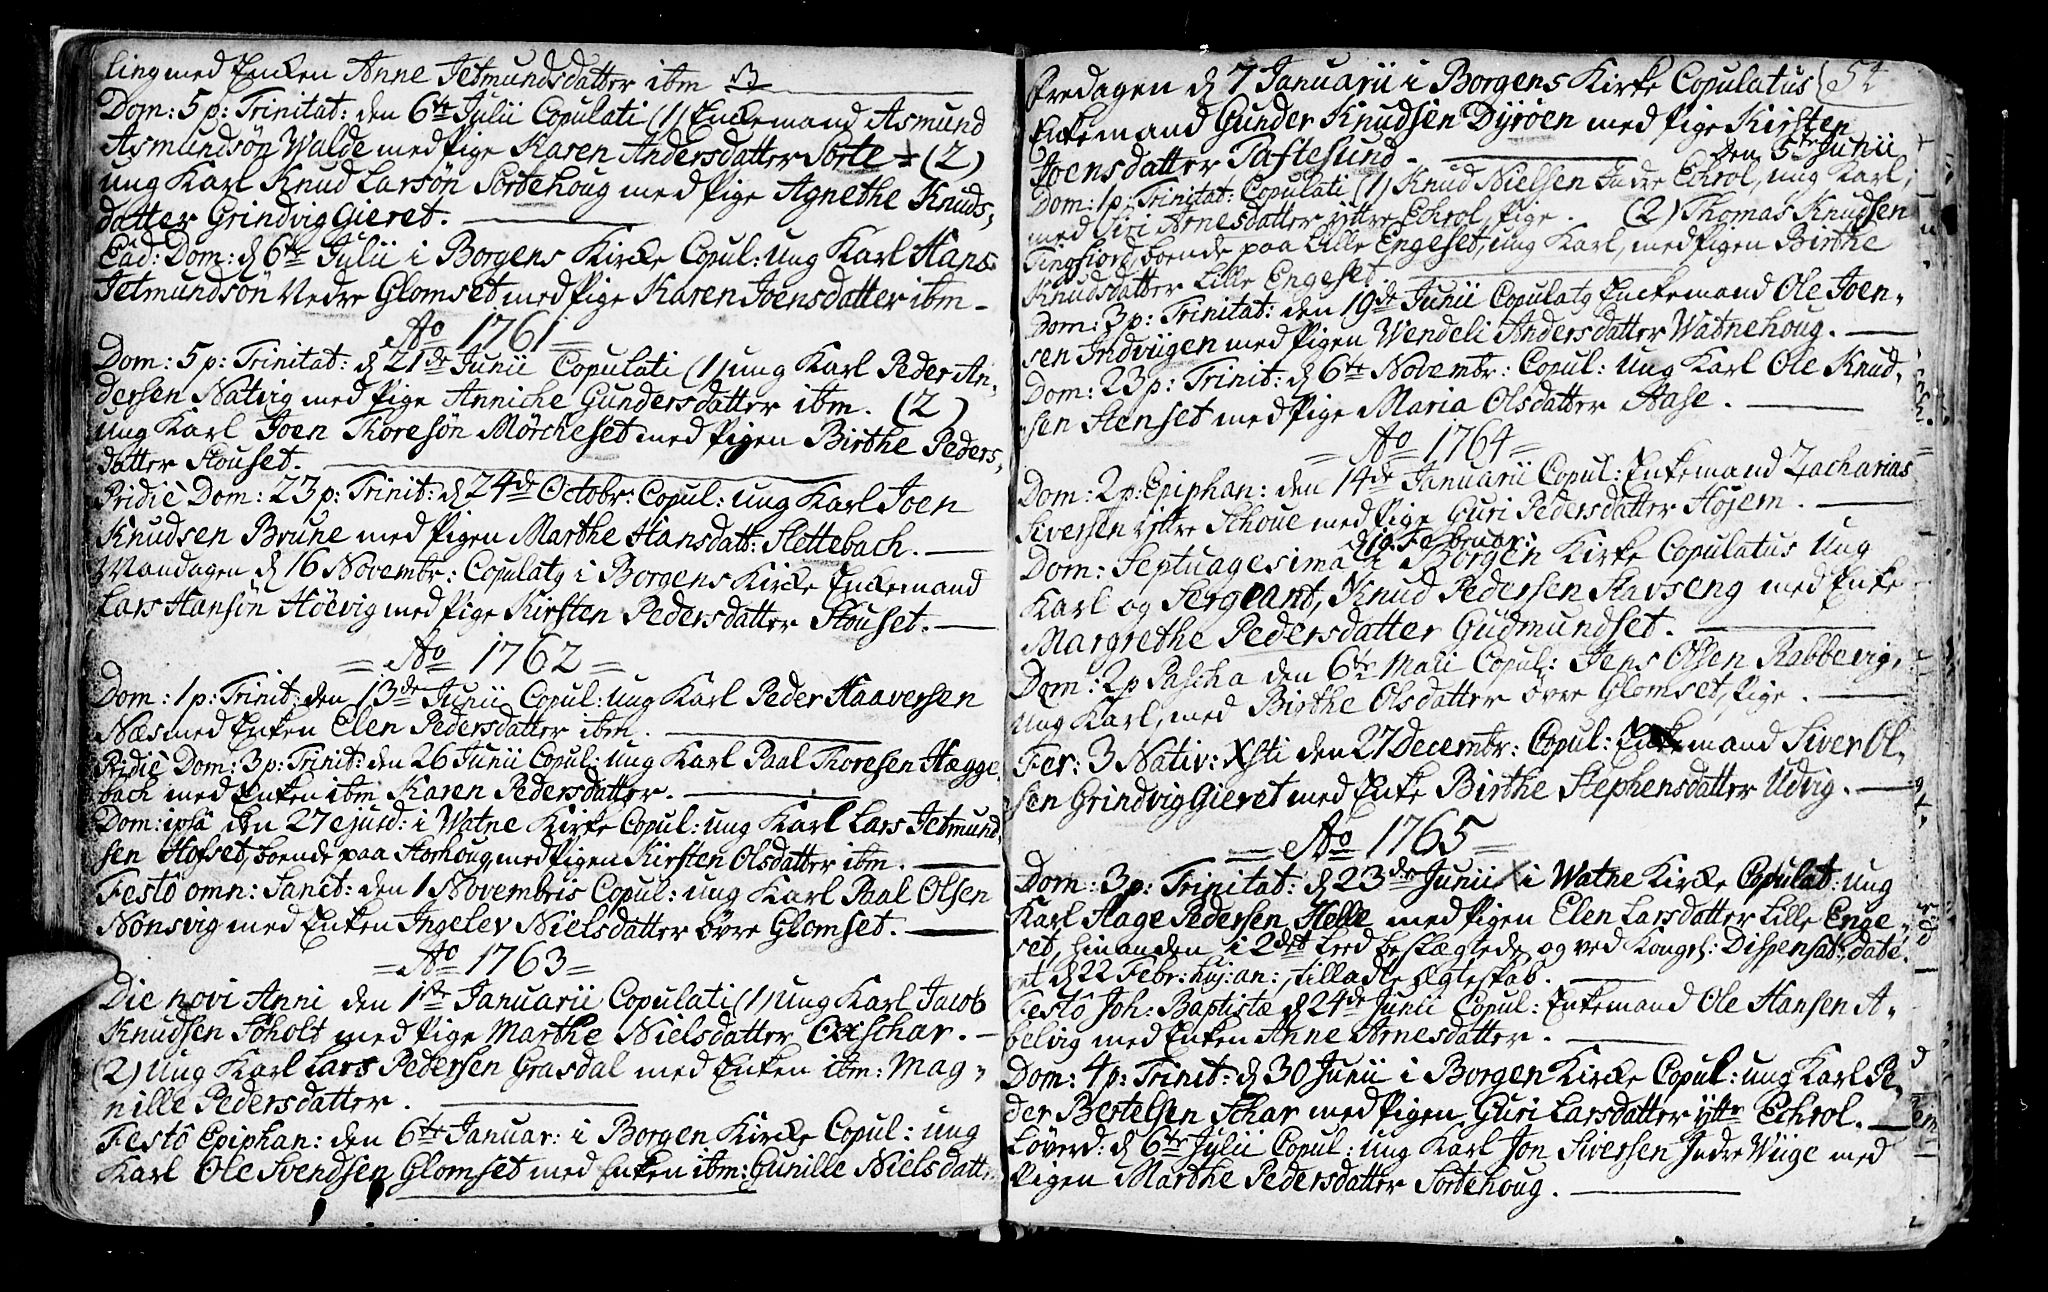 ling med Enken Anne Jetmundsdatter ibm
Dom: 5 p: Trinitat: den 6te Julii Copulati (1) Enckemand Asmund
Asmundsön Walde med Pige Karen Andersdatter Sorte = (2)
ung Karl Knud Larsön Sortehoug med Pige Agnethe Knuds,
datter Grindvig Gieret.
Ead: Dom: d 6te Julii i Borgens Kircke Copul: ung Karl Hans
Jetmundsön Nedre Glomset med Pige Karen Joensdatter ibm -
Ao 1761 =
Dom: 5 p: Trinitat: d 21de Junii Copulati (1) ung Karl Peder An,
dersen Natvig med Pige Anniche Gundersdatter ibm. (2)
ung Karl Joen Thoresön Mörcheset med Pigen Birthe Peders,
datter Stouset.
Pridiè Dom: 23 p: Trinit: d 24de Octobr: Copul: ung Karl Joen
Knudsen Brune med Pigen Marthe Hansdatt: Slettebach.
Mandagen d 16 Novembr: Copulatg i Borgens Kircke Enckemand
Lars Hansön Höevig med Pige Kirsten Pedersdatter Stouset.
= Ao 1762 =
Dom: 1 p: Trinit: den 13de Junii Copul: ung Karl Peder Haaversen
Næs med Enken Elen Pedersdatter ibm.
Pridiè Dom: 3 p: Trinit: den 26 Junii Copul: ung Karl Paal Thoresen Hægge
bach med Enken ibm Karen Pedersdatter.
Dom: ipsâ den 27 ejusd: i Watne Kirke Copul: ung Karl Lars Jetmund,
sen Hofset, boende paa Storhoug med Pigen Kirsten Olsdatter ibm.
Festô omn: Sanct: den 1 Novembris Copul: ung Karl Paal Olsen
Nonsvig med Enken Ingelev Nielsdatter övre Glomset.
= Ao 1763 =
Die novi Anni den 1ste Januarii Copulati (1) ung Karl Jacob
Knudsen Søholt med Pige Marthe Nielsdatter Oxschar. -
(2) Ung Karl Lars Pedersen Grasdal med Enken ibm: Mag,
nille Pedersdatter.
Festô Epiphan: den 6te Januar: i Borgen Kircke Copul: ung
Karl Ole Svendsen Glomset med Enken ibm: Gunille Nielsdatt:
Fredagen d 7 Januarii i Borgens Kirke Copulatus 54
Enkemand Gunder Knudsen Dyröen med Pige Kirsten
Joensdatter Taftesund. Den 5te Junii
Dom: 1 p: Trinitat: Copulati (1) Knud Nielsen Indre Echrol, ung Karl;
med Siri Arnesdatter yttre Echrol, Pige. (2) Thomas Knudsen
Tingfiord, boende paa Lille Engeset, ung Karl, med Pigen Birthe
Knudsdatter Lille Engeset
Dom: 3 p: Trinitat: den 19de Junii Copulatg Enckemand Ole Joen,
sen Indvigen med Pigen Wendeli Andersdatter Watnehoug.
Dom: 23 p: Trinit: d 6te Novembr: Copul: ung Karl Ole Knud,
sen Stenset med Pige Maria Olsdatter Aase.
= Ao 1764 =
Dom: 2 p: Epiphan: den 14de Januarii Copul: Enkemand Zacharias
Siversen yttre Schoue med Pige Guri Pedersdatter Hojem.
d 19 Februar:
Dom: Septuagesima i Borgen Kirke Copulatus Ung
Karl og Sergeant, Knud Pedersen Havseng med Enke
Margrethe Pedersdatter Gudmundset.
Dom: 2 p Pascha den 6te Maii Copul: Jens Olsen Rabbevig,
ung Karl, med Birthe Olsdatter övre Glomset, Pige.
Fer: 3 Nativ: Xsti den 27 Decembr: Copul: Enkemand Siver Ol,
sen Grindvig Gieret med Enke Birthe Stephensdatter Udvig.
= Ao 1765 =
Dom: 3 p: Trinitat: d 23de Junii i Watne Kircke Copulat: ung
Karl Hage Pedersen Helle med Pigen Elen Larsdatter Lille Enge,
set, hinanden i 2det Led beslægtede, og ved Kongel: Dispensat: date,
ret d 22 Febr: huj: an:, tilladte Ægteskab.
Festô Joh: Baptistæ d 24de Junii Copul: Enkemand Ole Hansen A,
belvig med Enken Anne Arnesdatter.
Dom: 4 p: Trinit: d 30 Junii i Borgen Kircke Copul: ung Karl Pe,
der Bertelsen Schar med Pigen Guri Larsdatter yttr Echrol.
Löverd: d 6te Julii Copul: ung Karl Jon Siversen Indre Wiige med
Pigen Marthe Pedersdatter Sortehoug.